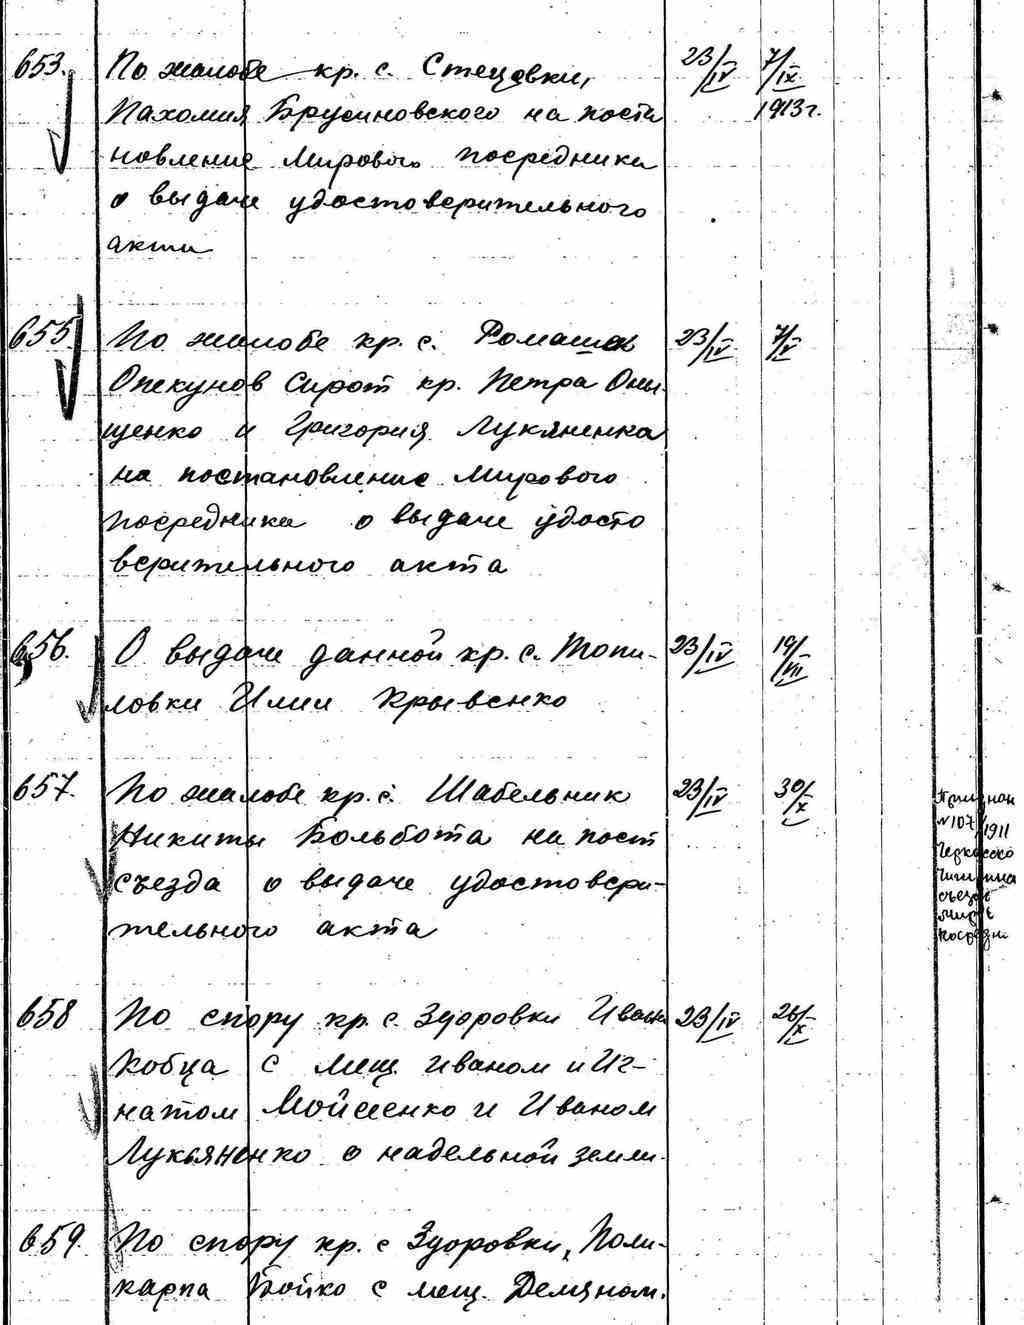 653. По жалобе кр. с. Стецовки, 23/IV 7/IX
Пахомия Брусиновского на поста 1913 г.
новление Мирового посредника
о выдаче удостоверительного
акта
655. По жалобе кр. с. Ромашек 23/IV 7/V
Опекунов сирот кр. Петра Они-
щенко и Григория Лукяненка
на постановление Мирового
посредника о выдаче удосто
верительного акта
656. О выдаче данной кр. с. Топи- 23/IV 19/VII
ловки Илии Крывенко
657. По жалобе кр. с. Шабельник 23/IV 30/X
Никиты Больбота на пост
съезда о выдаче удостовери-
тельного акта
№107/1911
съезд
658 По спору кр. с. Здоровки Ивана 23/IV 26/X
Кобца с мещ. Иваном и Иг-
натом Мойсеенко и Иваном
Лукьяненко о надельной земли.
659. По спору кр. с Здоровки, Поли-
карпа Бойко с мещ. Демяном.